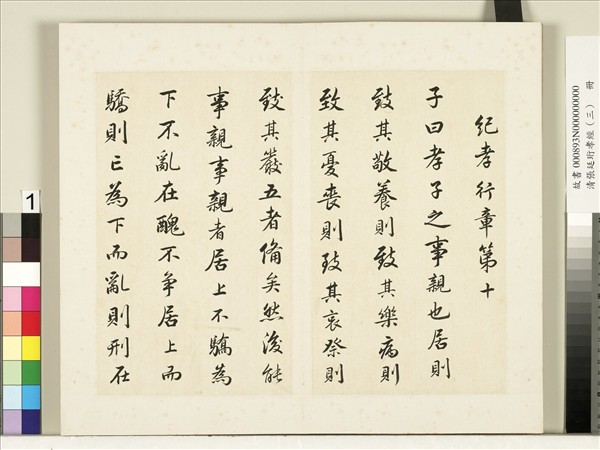 紀孝行章第十
子曰孝子之事親也居則
致其敬養則致其樂病則
致其憂喪則致其哀祭則
致其嚴五者備矣然後能
事親事親者居上不驕為
下不亂在醜不爭居上而
驕則亡為下而亂則刑在
故書 000893N000000000
清張廷珩孝經（三） 冊
1